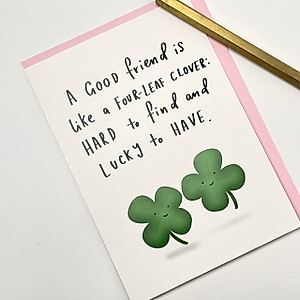 A GOOD friend is
like a FOUR-LEAF CLOVER:
HARD to find and
LUCKY to HAVE.